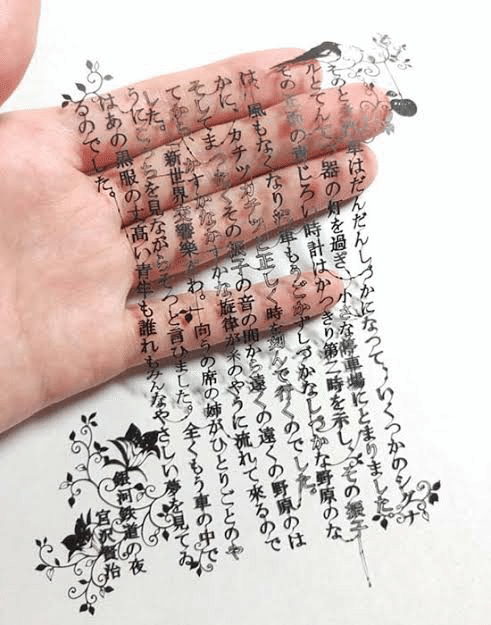 そのとき汽車はだんだんしづかになって、いくつかのシグナ
ルとてんてつ器の灯を過ぎ、小さな停車場にとまりました。
その正面の青じろい時計はかつきり第二時を示し、その振子
は、風もなくなり汽車もうごかずしづかなしづかな野原のな
かに、カチツカチツと正しく時を刻んで行くのでした。
そしてまつたくその振子の音の間から遠くの遠くの野原のは
てから、かすかなかすかな旋律が糸のやうに流れて来るので
した。「新世界交響楽だわ。」向うの席の姉がひとりごとのや
うにこつちを見ながらそつと言ひました。全くもう車の中で
はあの黒服の丈高い青年も誰れもみんなやさしい夢を見てゐ
るのでした。
銀河鉄道の夜
宮沢賢治